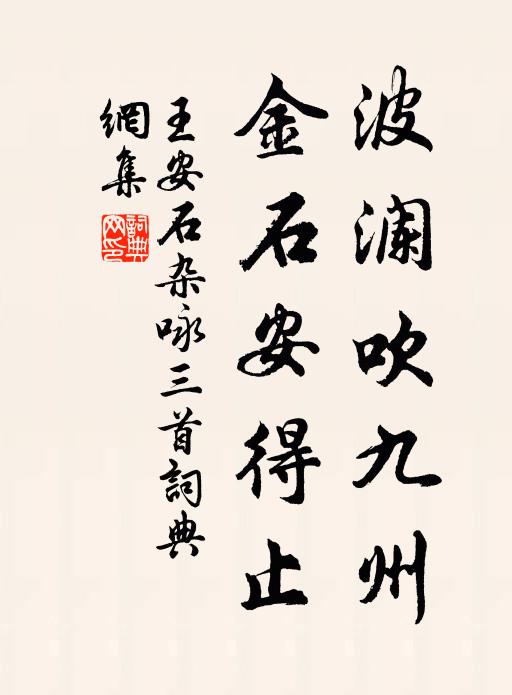 波澜吹九州
金石安得止
王安石杂咏三首詞典
網集
詞典
网印